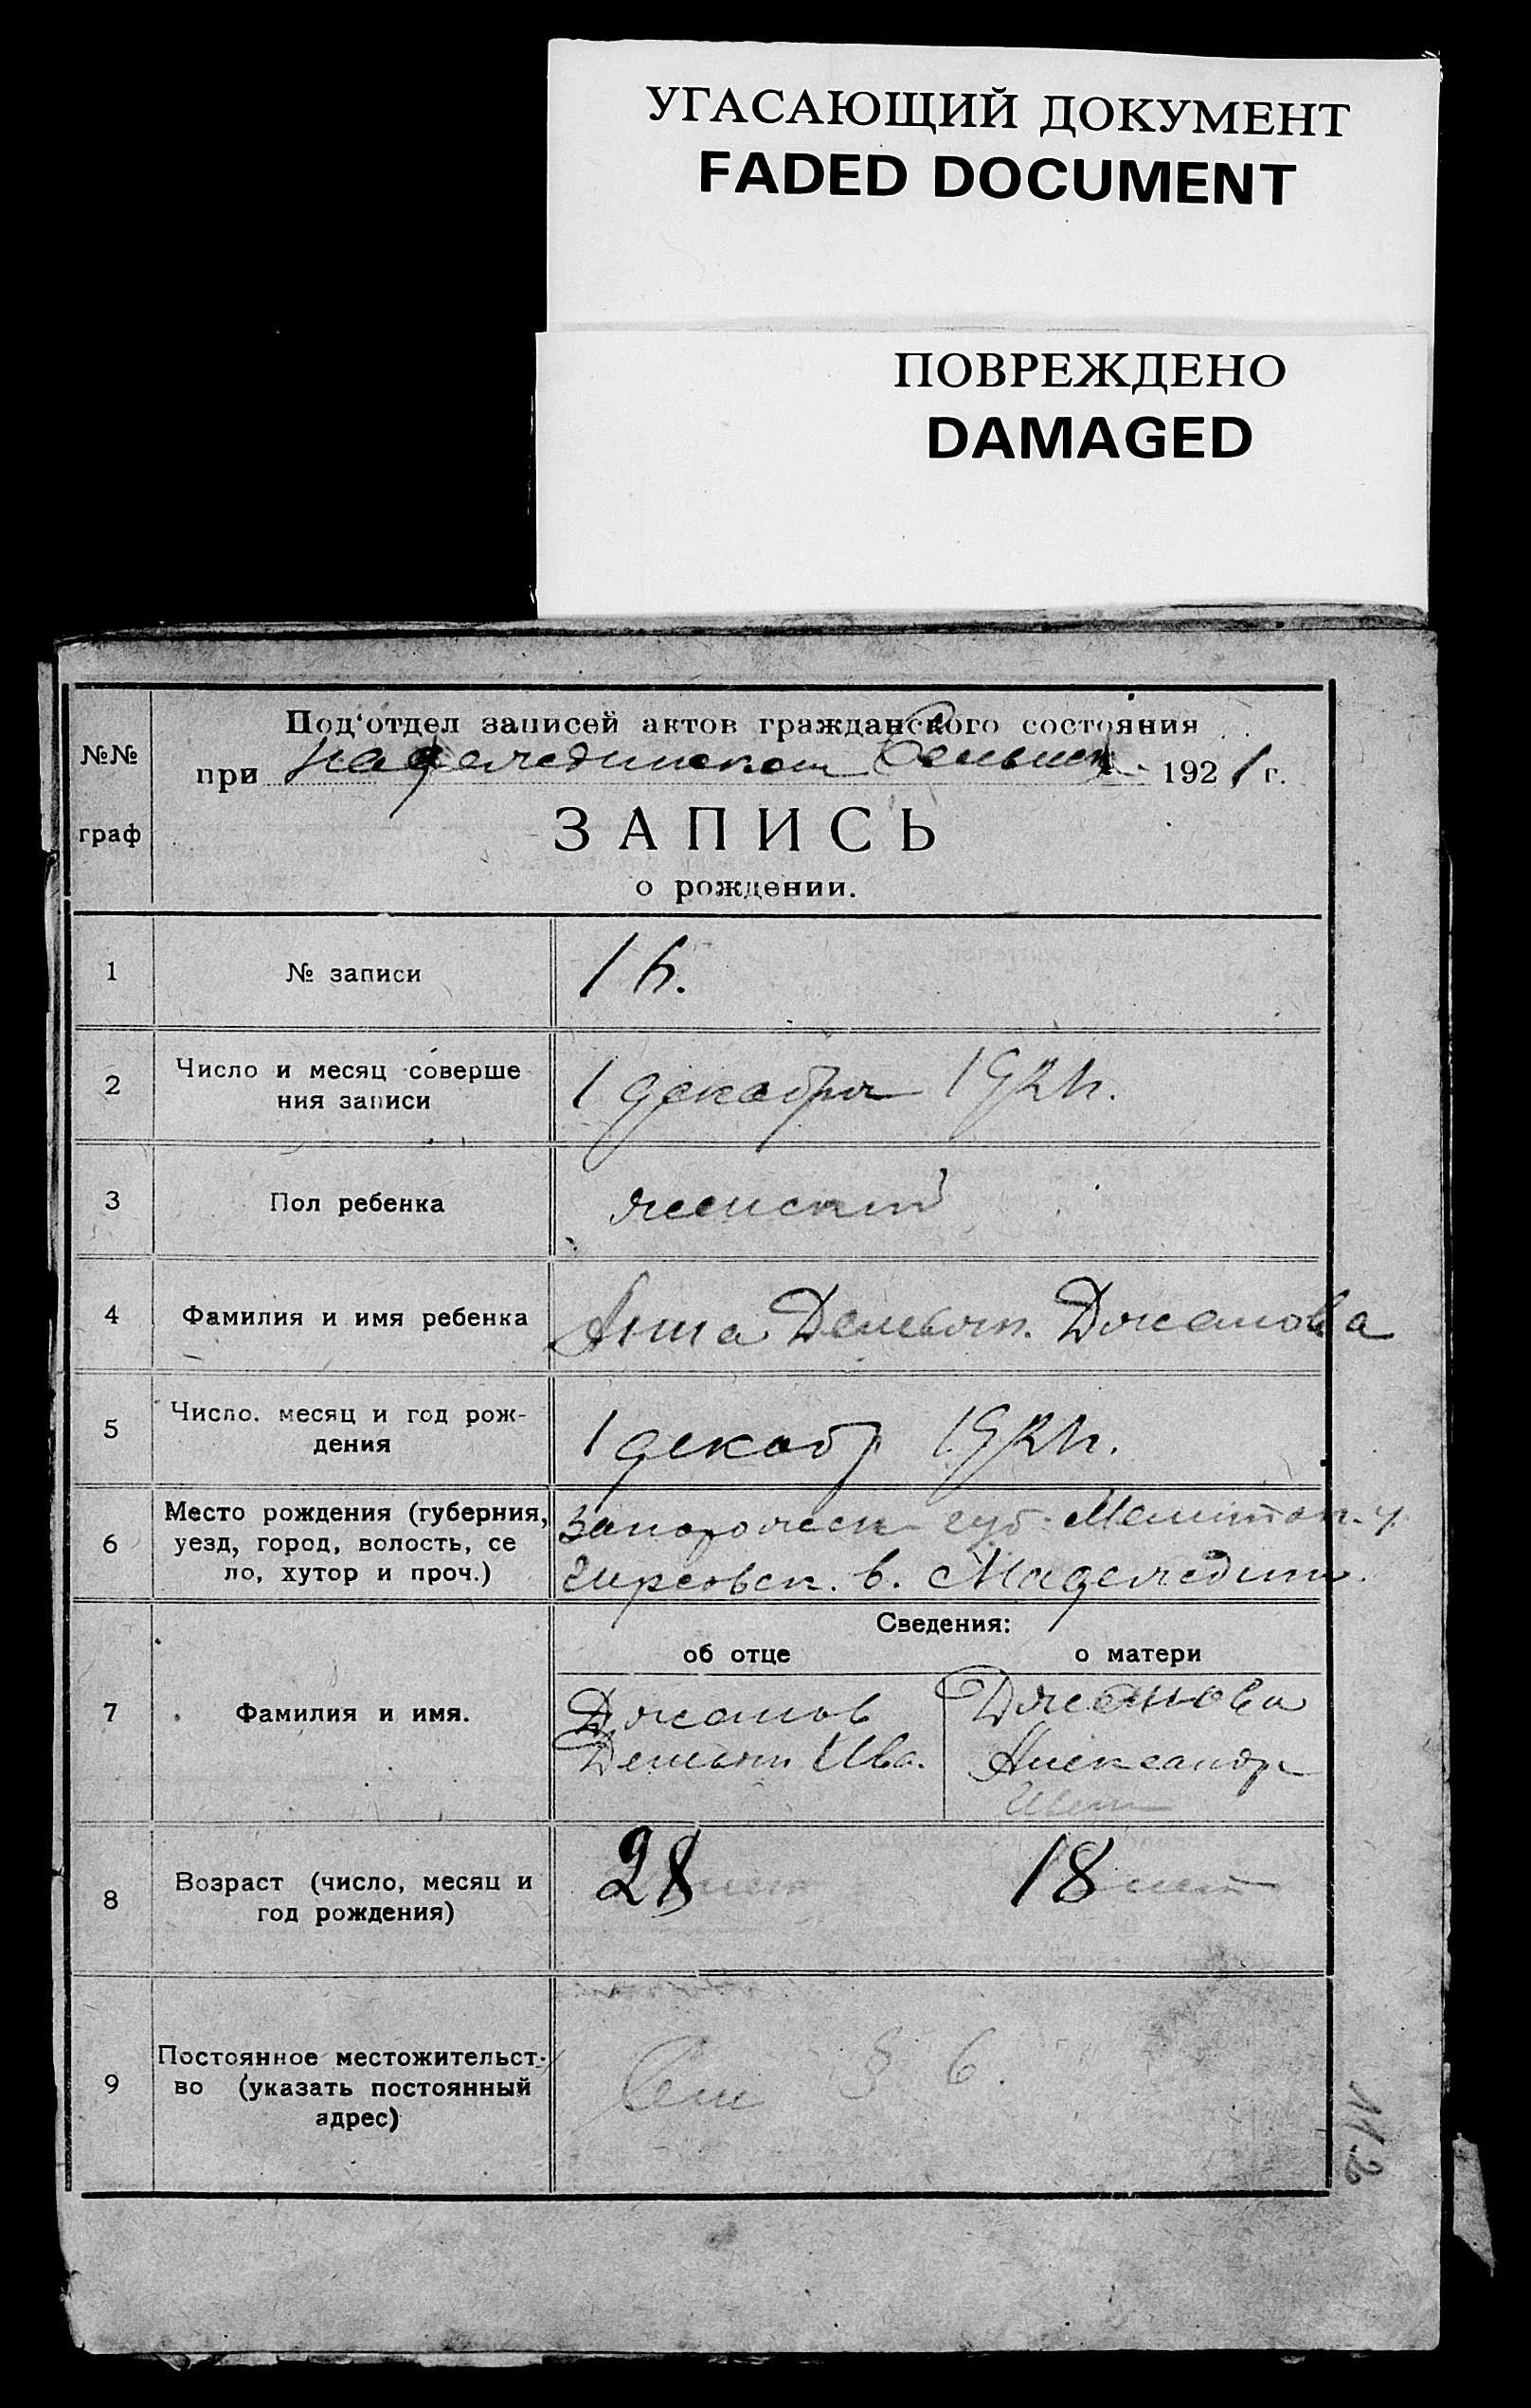 УГАСАЮЩИЙ ДОКУМЕНТ
FADED DOCUMENT
ПОВРЕЖДЕНО
DAMAGED
Под'отдел записей актов гражданского состояния
№№
при 192 1 г.
граф
ЗАПИСЬ
о рождении.
1 № записи
2 Число и месяц соверше
ния записи
1 декабря
3 Пол ребенка женский
4 Фамилия и имя ребенка Анна Демьян. Джанова
5 Число. месяц и год рож-
дения
1 декабр
6 Место рождения (губерния,
уезд, город, волость, се
ло, хутор и проч.)
Запорожск губ. Мелитоп. у.
в.
Сведения:
об отце о матери
7 Фамилия и имя.
Джанов Джанова
Демьян Ива. Александр
8 Возраст (число, месяц и
год рождения)
28 лет 18 лет
9 Постоянное местожительст-
во (указать постоянный
адрес)
См § 6.